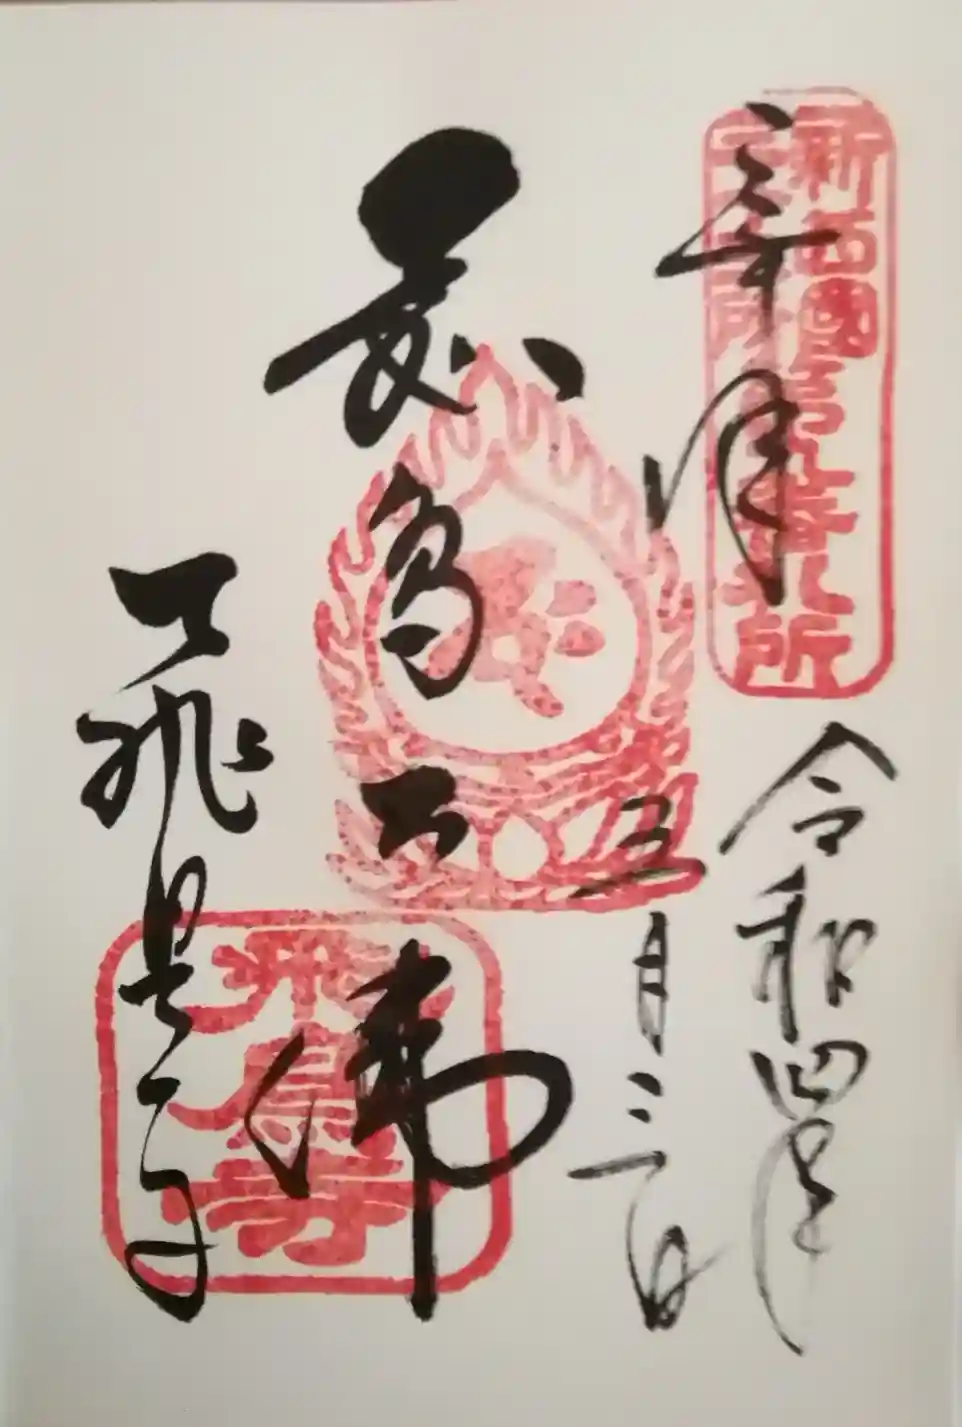 奉拝
新西國
番札所
令和四年
五月三日
飛鳥大佛
飛鳥寺
飛鳥寺